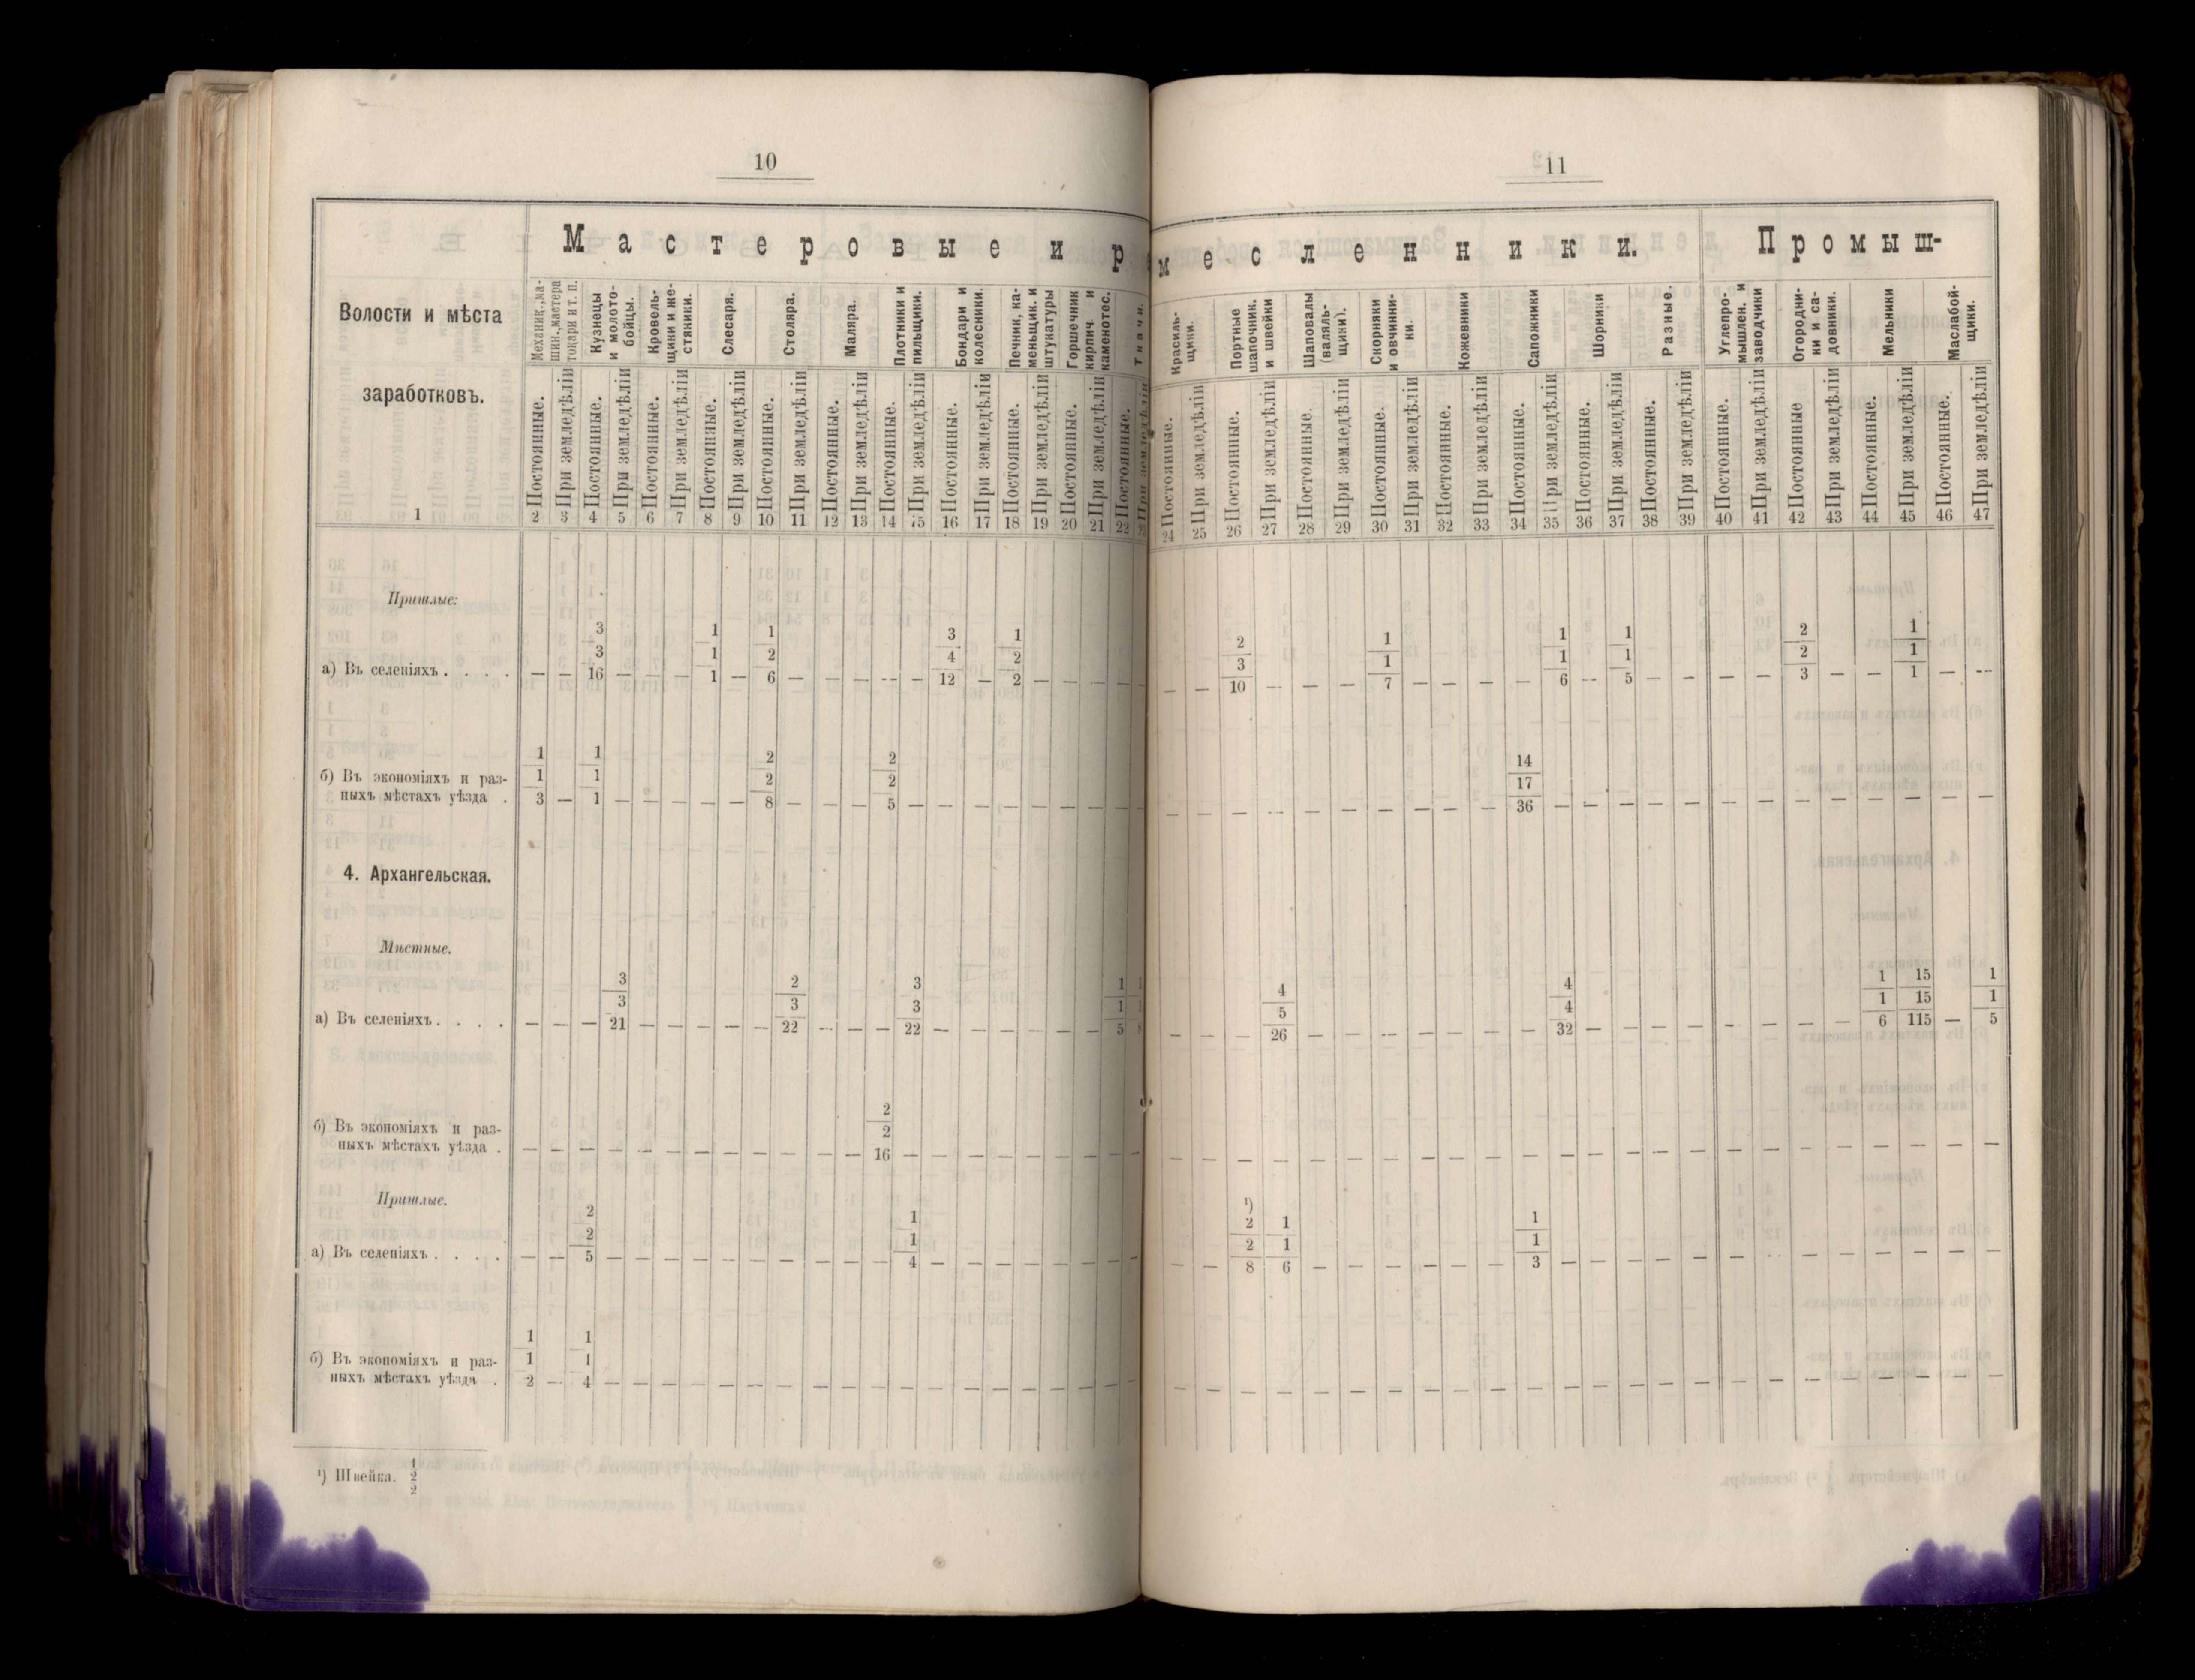 10
Мастеровые и р
Волости и мѣста
заработковъ.
Механик.,ма-
шин.,мастера
токари и т. п.
Кузнецы
и молото-
бойцы.
Кровель-
щики и же-
стяники.
Слесаря.
Столяра.
Маляра.
Плотники и
пильщики.
Бондари и
колесники.
Печник, ка-
меньщик. и
штукатуры
Горшечник
кирпич и
каменотес.
Ткачи.
Постоянные. При земледѣліи Постоянные. При земледѣліи Постоянные. При земледѣліи Постоянные. При земледѣліи Постоянные. При земледѣліи Постоянные. При земледѣліи Постоянные. При земледѣліи Постоянные. При земледѣліи Постоянные. При земледѣліи Постоянные. При земледѣліи Постоянные. При земледѣліи
1 2 3 4 5 6 7 8 9 10 11 12 13 14 15 16 17 18 19 20 21 22
Пришлые:
3 1 1 3 1
3 1 2 4 2
а) Въ селеніяхъ . . . . — — 16 — — — 1 — 6 — — — -- — 12 — 2 — — — —
1 1 2 2
б) Въ экономіяхъ и раз- 1 1 2 2
ныхъ мѣстахъ уѣзда . 3 — 1 — — — — — 8 — — — 5 — — — — — — — — —
4. Архангельская.
Мѣстные.
3 2 3 1 1
3 3 3 1 1
а) Въ селеніяхъ . . . . — — — 21 — — — — — 22 — — — 22 — — — — — — 5 8
2
б) Въ экономіяхъ и раз- 2
ныхъ мѣстахъ уѣзда . — — — — — — — — — — — — 16 — — — — — — — — —
Пришлые.
2 1
2 1
а) Въ селеніяхъ . . . . — — 5 — — — — — — — — — — 4 — — — — — — — —
1 1
б) Въ экономіяхъ и раз- 1 1
ныхъ мѣстахъ уѣзда . 2 — 4 — — — — — — — — — — — — — — — — — — —
¹) Швейка. 1
2
2
11
месленники. Промыш-
Красиль-
щики.
Портные
шапочник.
и швейки
Шаповалы
(валяль-
щики).
Скорняки
и овчинни-
ки.
Кожевники
Сапожники
Шорники
Разные.
Углепро-
мышлен. и
заводчики
Огородни-
ки и са-
довники.
Мельники
Маслабой-
щики.
Постоянные. При земледѣліи Постоянные. При земледѣліи Постоянные. При земледѣліи Постоянные. При земледѣліи Постоянные. При земледѣліи Постоянные. При земледѣліи Постоянные. При земледѣліи Постоянные. При земледѣліи Постоянные. При земледѣліи Постоянные При земледѣліи Постоянные. При земледѣліи Постоянные. При земледѣліи
24 25 26 27 28 29 30 31 32 33 34 35 36 37 38 39 40 41 42 43 44 45 46 47
2 1 1 1 2 1
3 1 1 1 2 1
— — 10 -- — — 7 — — — — 6 -- 5 — — — — 3 — — 1 — --
14
17
— — — — — — — — — — 36 — — — — — — — — — — — — —
4 4 1 15 1
5 4 1 15 1
— — — 26 — — — — — — — 32 — — — — — — — — 6 115 — 5
— — — — — — — — — — — — — — — — — — — — — — — —
¹)
2 1 1
2 1 1
— — 8 6 — — — — — — 3 — — — — — — — — — — — — —
— — — — — — — — — — — — — — — — — — — — — — — —